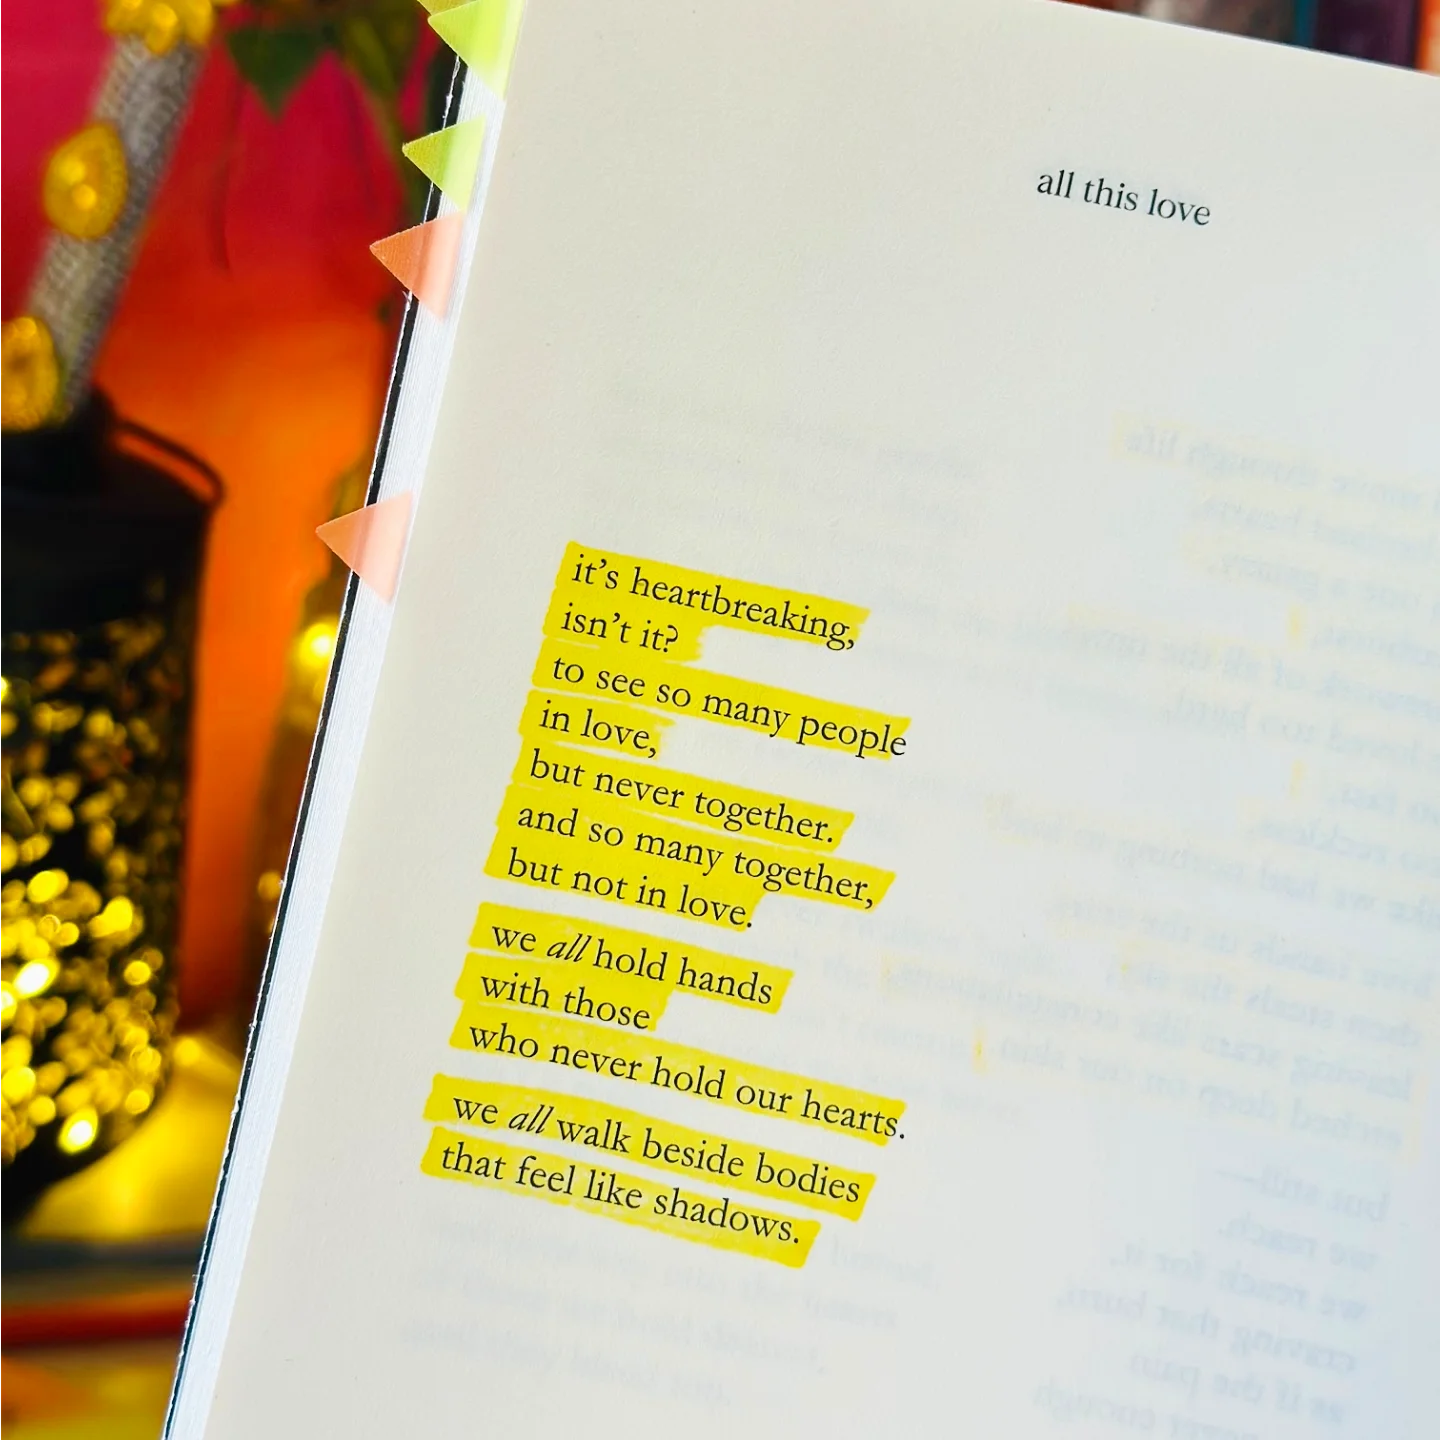 all this love
it's heartbreaking,
isn't it?
to see so many people
in love,
but never together.
and so many together,
but not in love.
we all hold hands
with those
who never hold our hearts.
we all walk beside bodies
that feel like shadows.